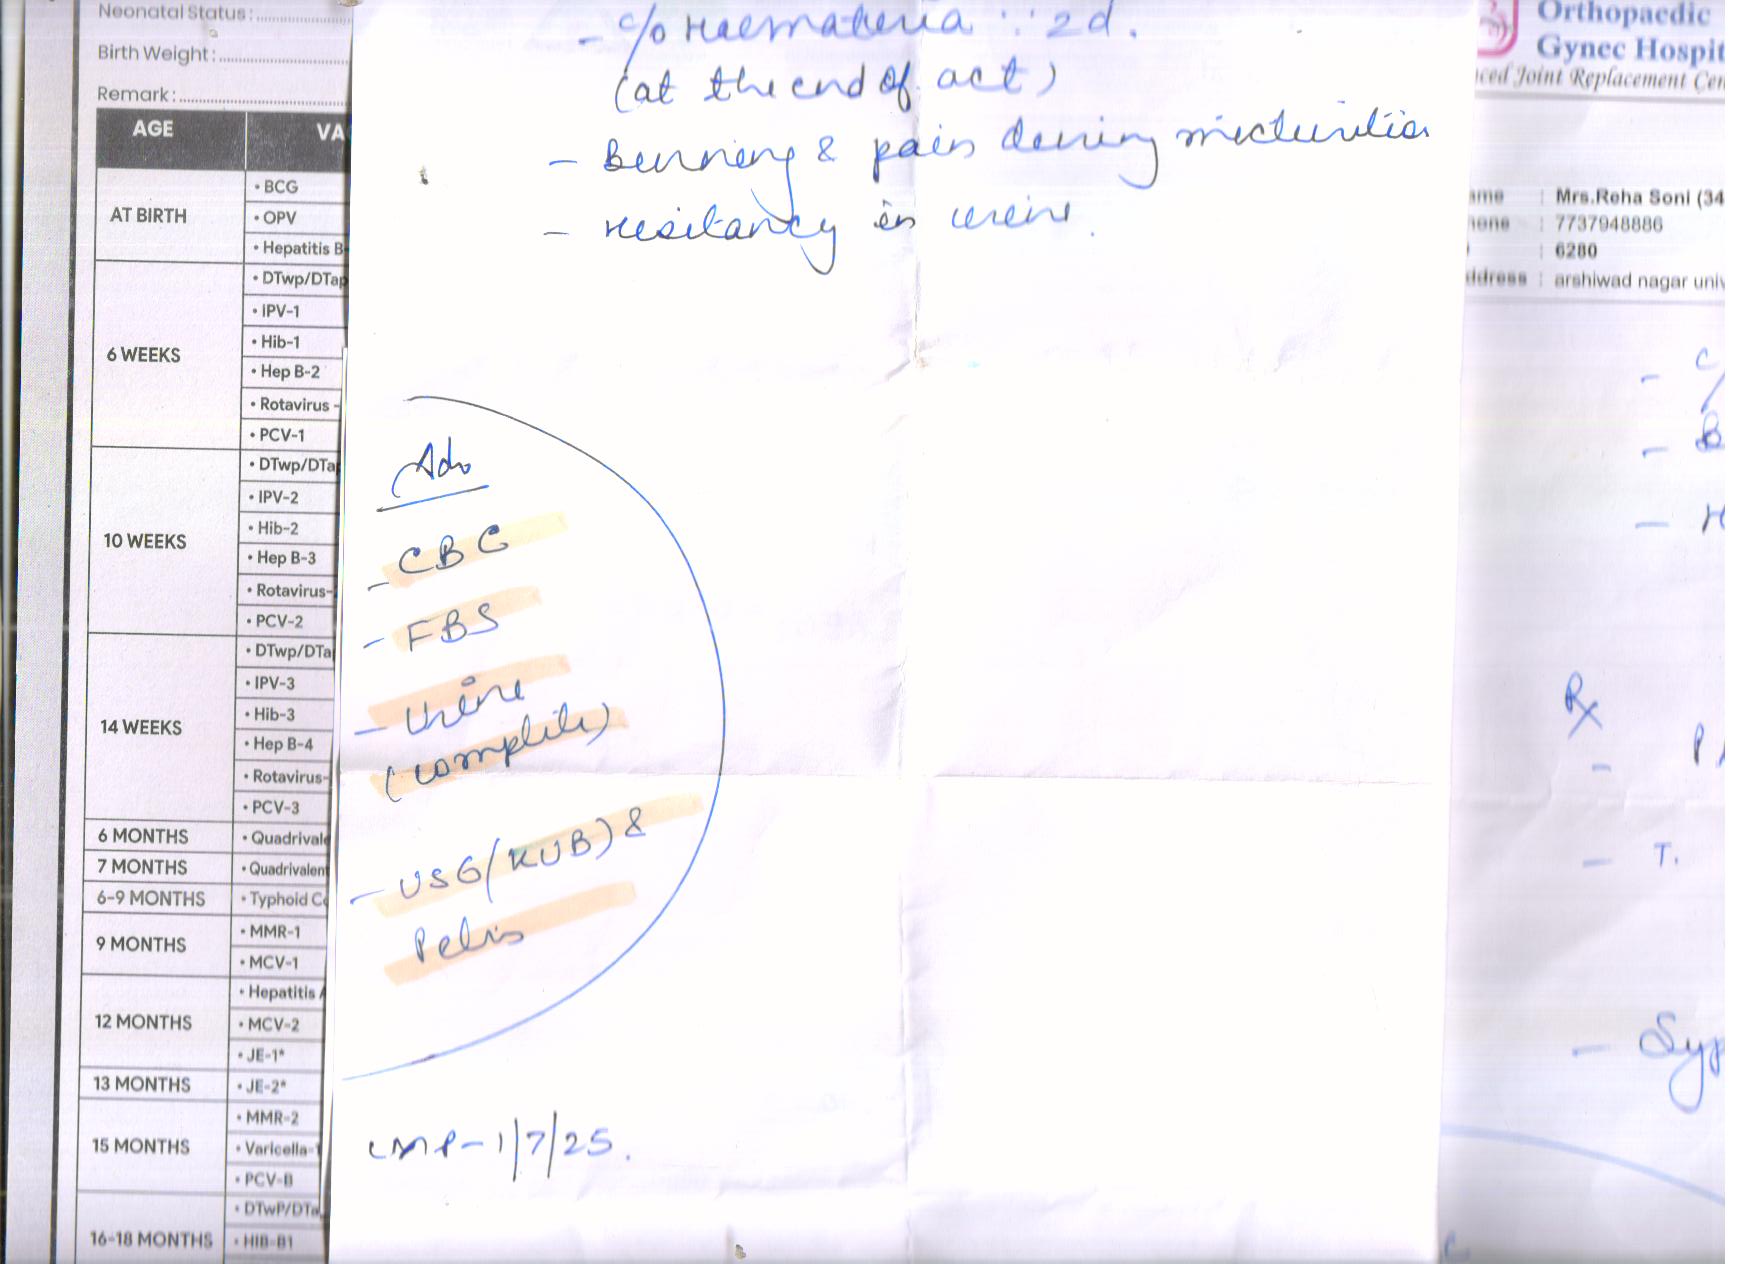 Neonatal Status :
Birth Weight :
Remark :
AGE
VA
AT BIRTH
• BCG
• OPV
• Hepatitis B-
6 WEEKS
• DTwp/DTap
• IPV-1
• Hib-1
• Hep B-2
• Rotavirus -
• PCV-1
10 WEEKS
• DTwp/DTa
• IPV-2
• Hib-2
• Hep B-3
• Rotavirus-
• PCV-2
14 WEEKS
• DTwp/DTa
• IPV-3
• Hib-3
• Hep B-4
• Rotavirus-
• PCV-3
6 MONTHS
• Quadrivale
7 MONTHS
• Quadrivalent
6-9 MONTHS
• Typhoid Co
9 MONTHS
• MMR-1
• MCV-1
12 MONTHS
• Hepatitis A
• MCV-2
• JE-1*
13 MONTHS
• JE-2*
15 MONTHS
• MMR-2
• Varicella-1
• PCV-B
16-18 MONTHS
• DTwP/DTa
• HIB-B1
- c/o Haematuria : 2d.
(at the end of act)
- Burning & pain during micturition
- Hesitancy in urine.
Adv
- CBC
- FBS
- Urine
(complete)
- USG (KUB) &
Pelvis
LMP - 1/7/25.
Orthopaedic
Gynec Hospit
ced Joint Replacement Cen
ame : Mrs.Reha Soni (34
hone : 7737948886
: 6280
ddress : arshiwad nagar univ
- C/
- B
- H
Rx
- P
- T.
- Syr